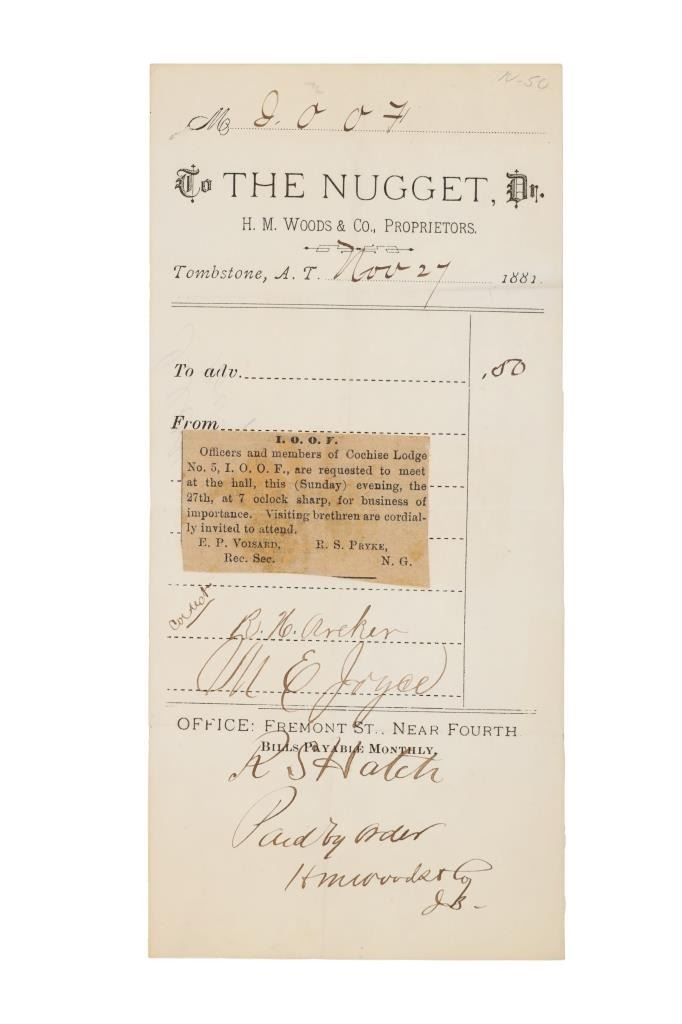 N-50
M I. O O F
To THE NUGGET, Dr.
H. M. WOODS & CO., PROPRIETORS.
Tombstone, A. T. Nov 27 1881.
To adv. .50
From
I. O. O. F.
Officers and members of Cochise Lodge
No. 5, I. O. O. F., are requested to meet
at the hall, this (Sunday) evening, the
27th, at 7 oclock sharp, for business of
importance. Visiting brethren are cordial-
ly invited to attend.
E. P. VOISARD, R. S. PRYKE,
Rec. Sec. N. G.
Correct
R. H. Archer
M E Joyce
OFFICE: FREMONT ST., NEAR FOURTH
BILLS PAYABLE MONTHLY.
R S Hatch
Paid by order
H M Woods & Co
J B -